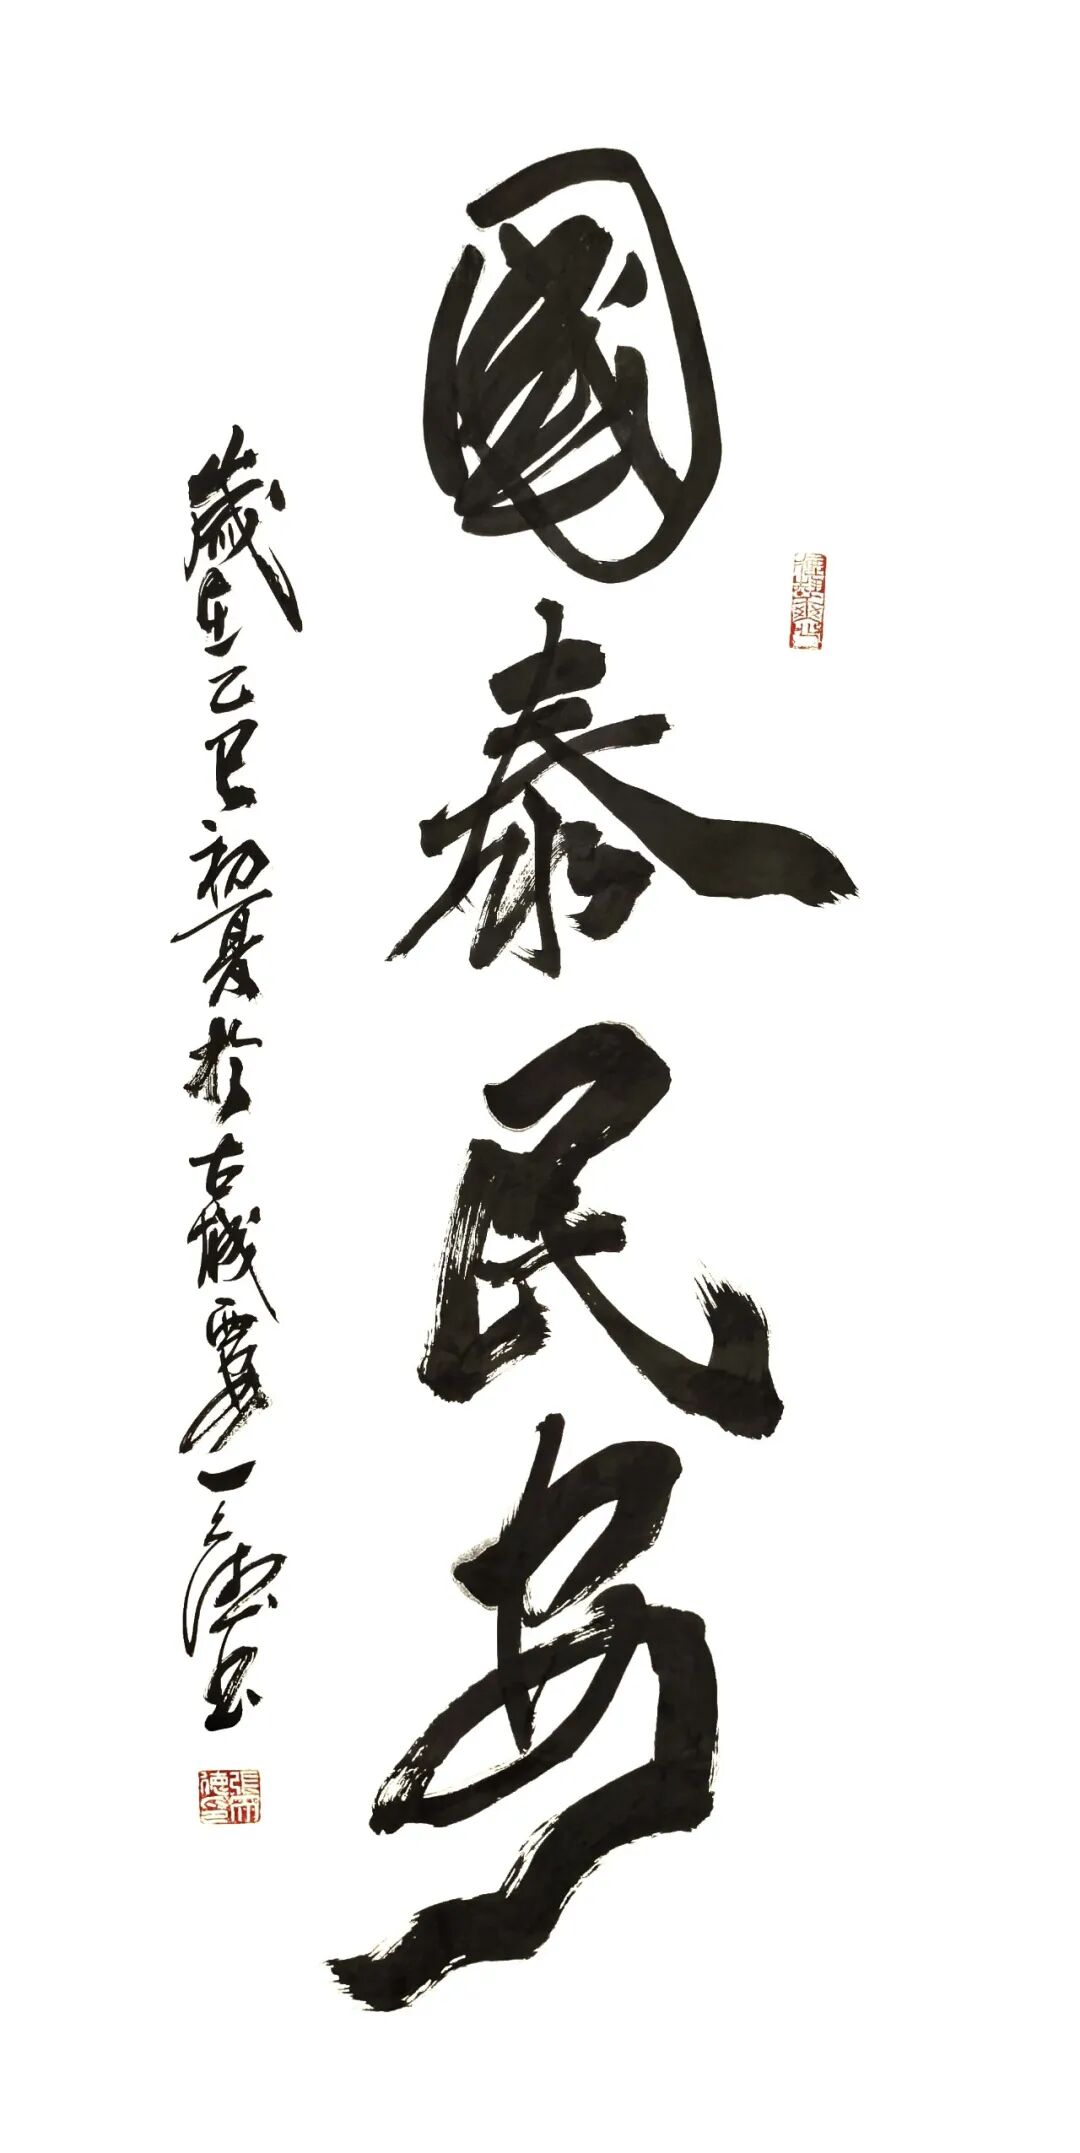 國泰民安
歲在乙巳初夏於古城西安一德書